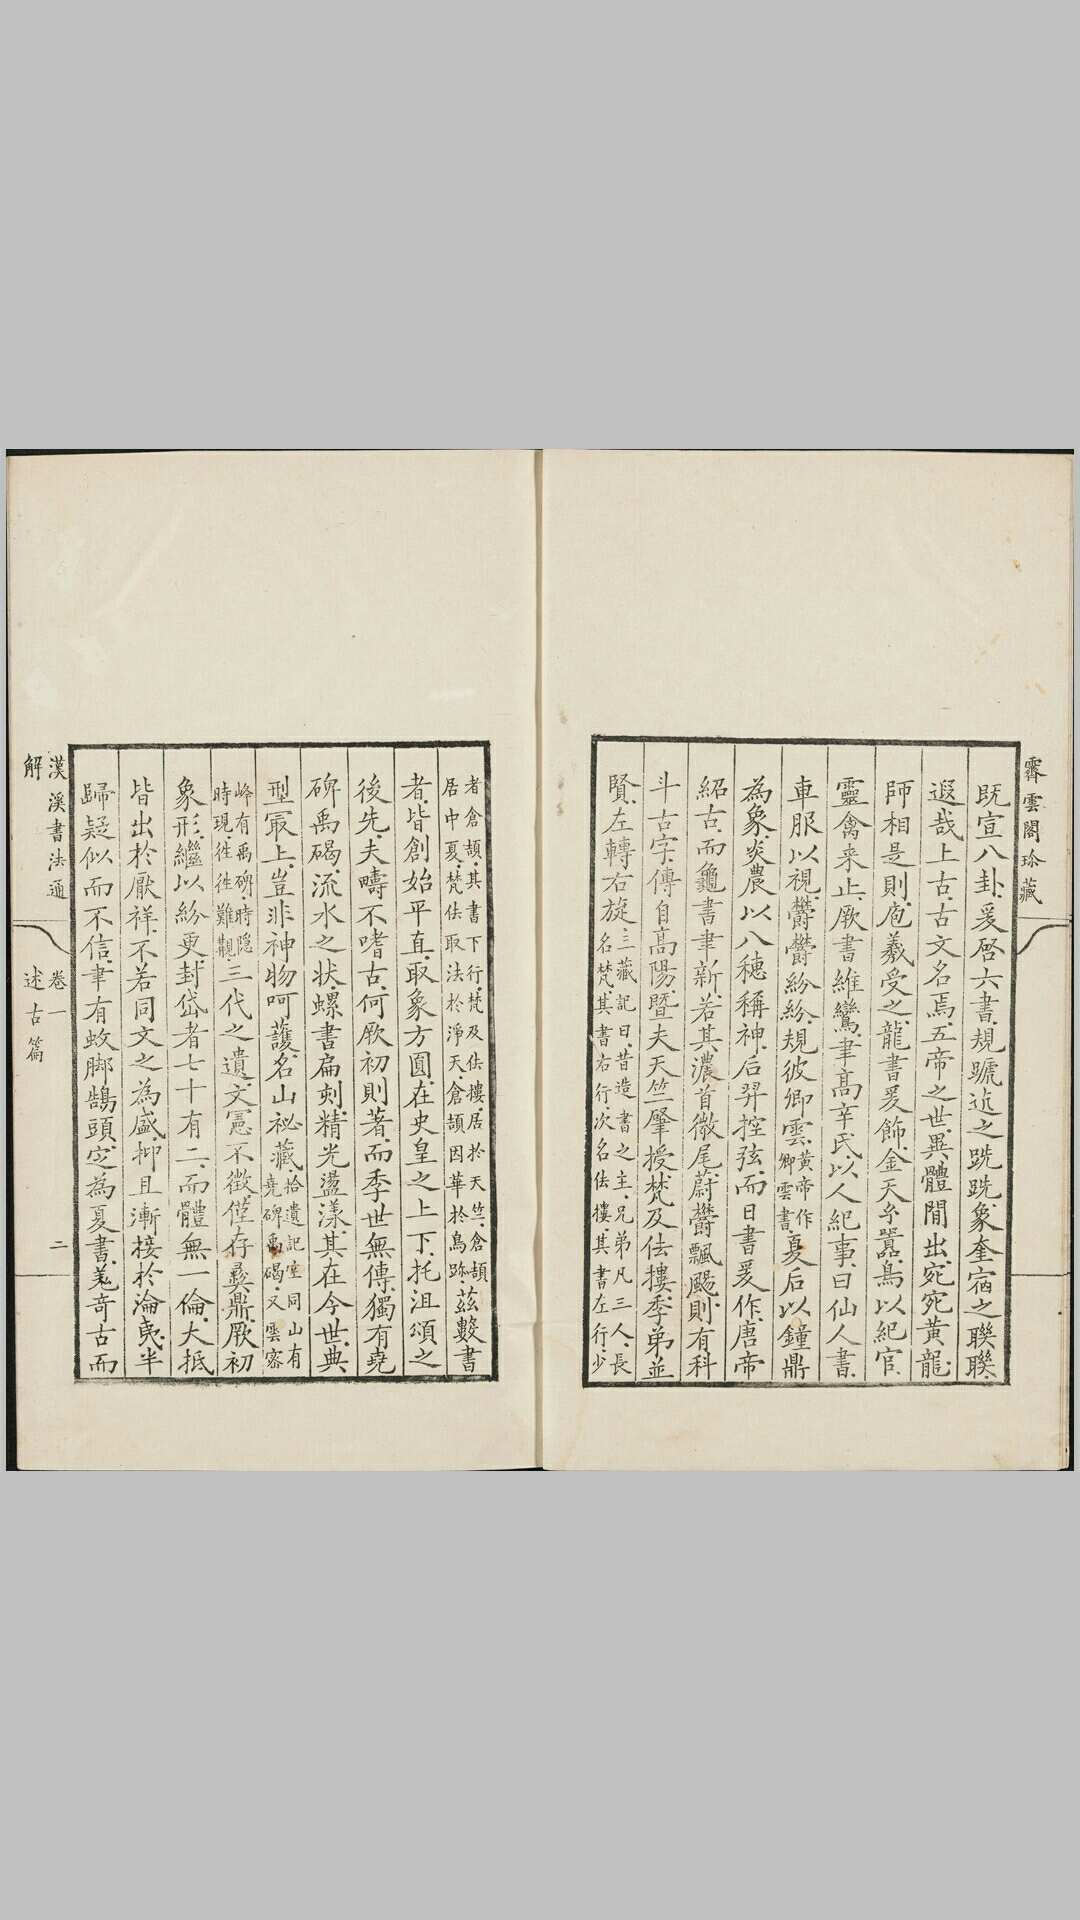 霽雲閣珍藏
既宣八卦爰啓六書規蹏迒之跣跣象奎宿之聯聯
遐哉上古古文名焉五帝之世異體閒出宛宛黃龍
師相是則庖羲受之龍書爰飾金天㕕囂鳥以紀官
靈禽來止厥書維鸞聿高辛氏以人紀事曰仙人書
車服以視鬱鬱紛紛規彼卿雲黃帝作卿雲書夏后以鐘鼎
為象炎農以八穂稱神后羿控弦而日書爰作唐帝
紹古而龜書聿新若其濃首微尾蔚鬱飄颺則有科
斗古字傳自高陽暨夫天竺肇授梵及佉摟季弟並
賢左轉右旋三藏記曰昔造書之主兄弟凡三人長
名梵其書右行次名佉摟其書左行少
者倉頡其書下行梵及佉摟居於天竺倉頡
居中夏梵佉取法於淨天倉頡因華於鳥跡茲數書
者皆創始平直取象方圓在史皇之上下托沮頌之
後先夫疇不嗜古何厥初則著而季世無傳獨有堯
碑禹碣流水之狀螺書扁刻精光盪漾其在今世典
型㝡上豈非神物呵護名山祕藏拾遺記崆同山有
堯碑禹碣又雲密
峰有禹碑時隱
時現徃徃難觀三代之遺文憲不徵僅存彜鼎厥初
象形繼以紛更封岱者七十有二而體無一倫大抵
皆出於厭祥不若同文之為盛抑且漸接於淪夷半
歸疑似而不信聿有蚊脚鵠頭定為夏書羗奇古而
漢溪書法通解
卷一
述古篇
二